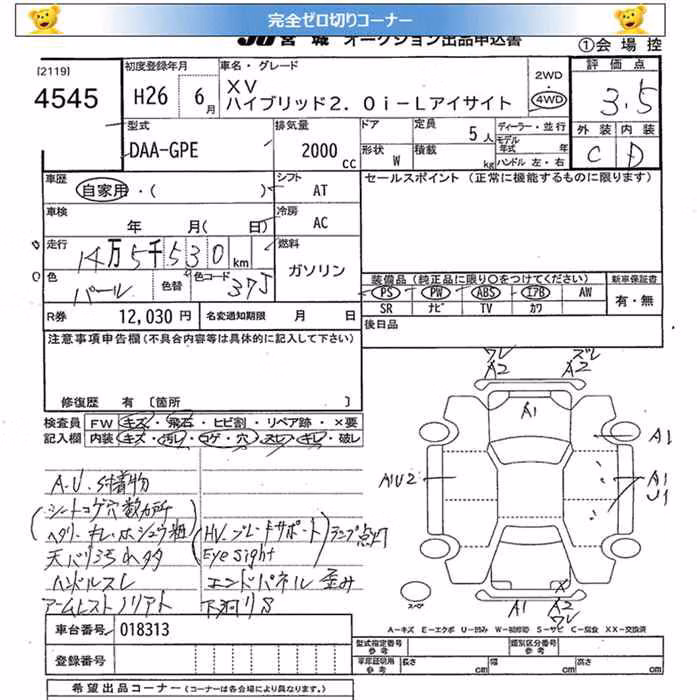 完全ゼロ切りコーナー
JU 宮城 オークション出品申込書
①会場控
[2119]
4545
初度登録年月
H26 6月
車名・グレード
XV
ハイブリッド2.0i-Lアイサイト
2WD
・
4WD
評価点
3.5
外装 内装
C D
型式
DAA-GPE
排気量
2000 cc
ドア
定員
5人
形状
W
積載
kg
ディーラー・並行
モデル年式 年
ハンドル 左・右
車歴
自家用・( )
シフト
AT
セールスポイント(正常に機能するものに限ります)
車検
年 月( 日)
冷房
AC
走行
14万5千530km
燃料
ガソリン
色
パール
色替
色コード
37J
装備品(純正品に限り○をつけてください)
PS PW ABS エアB AW
SR ナビ TV カワ
新車保証書
有・無
R券 12,030円
名変通知期限 月 日
後日品
注意事項申告欄(不具合内容等は具体的に記入して下さい)
修復歴 有 [箇所 ]
検査員記入欄
FW キズ・飛石・ヒビ割・リペア跡・×要
内装 キズ・汚レ・コゲ・穴・ヌレ・キレ・破レ
A.U.付着物
シートコゲ穴数カ所
ヘタリ・キレ・ホシュウ粗
天バリ汚れ
ハンドルスレ
アームレスト
HV ブレードサポート
Eye sight
ランプ点灯
エンドパネル歪み
下回りS
ワレ ズレ
A2 A2
A1
A1
AU2
A1
U1
X
A1 A2
ワレ
スペア
A-キズ E-エクボ U-凹み W-補修跡 S-サビ C-腐食 XX-交換済
車台番号 018313
登録番号
型式指定番号 参考
類別区分番号 参考
車庫証明用 参考
長さ cm 幅 cm 高さ cm
希望出品コーナー(コーナーは各会場により異なります。)